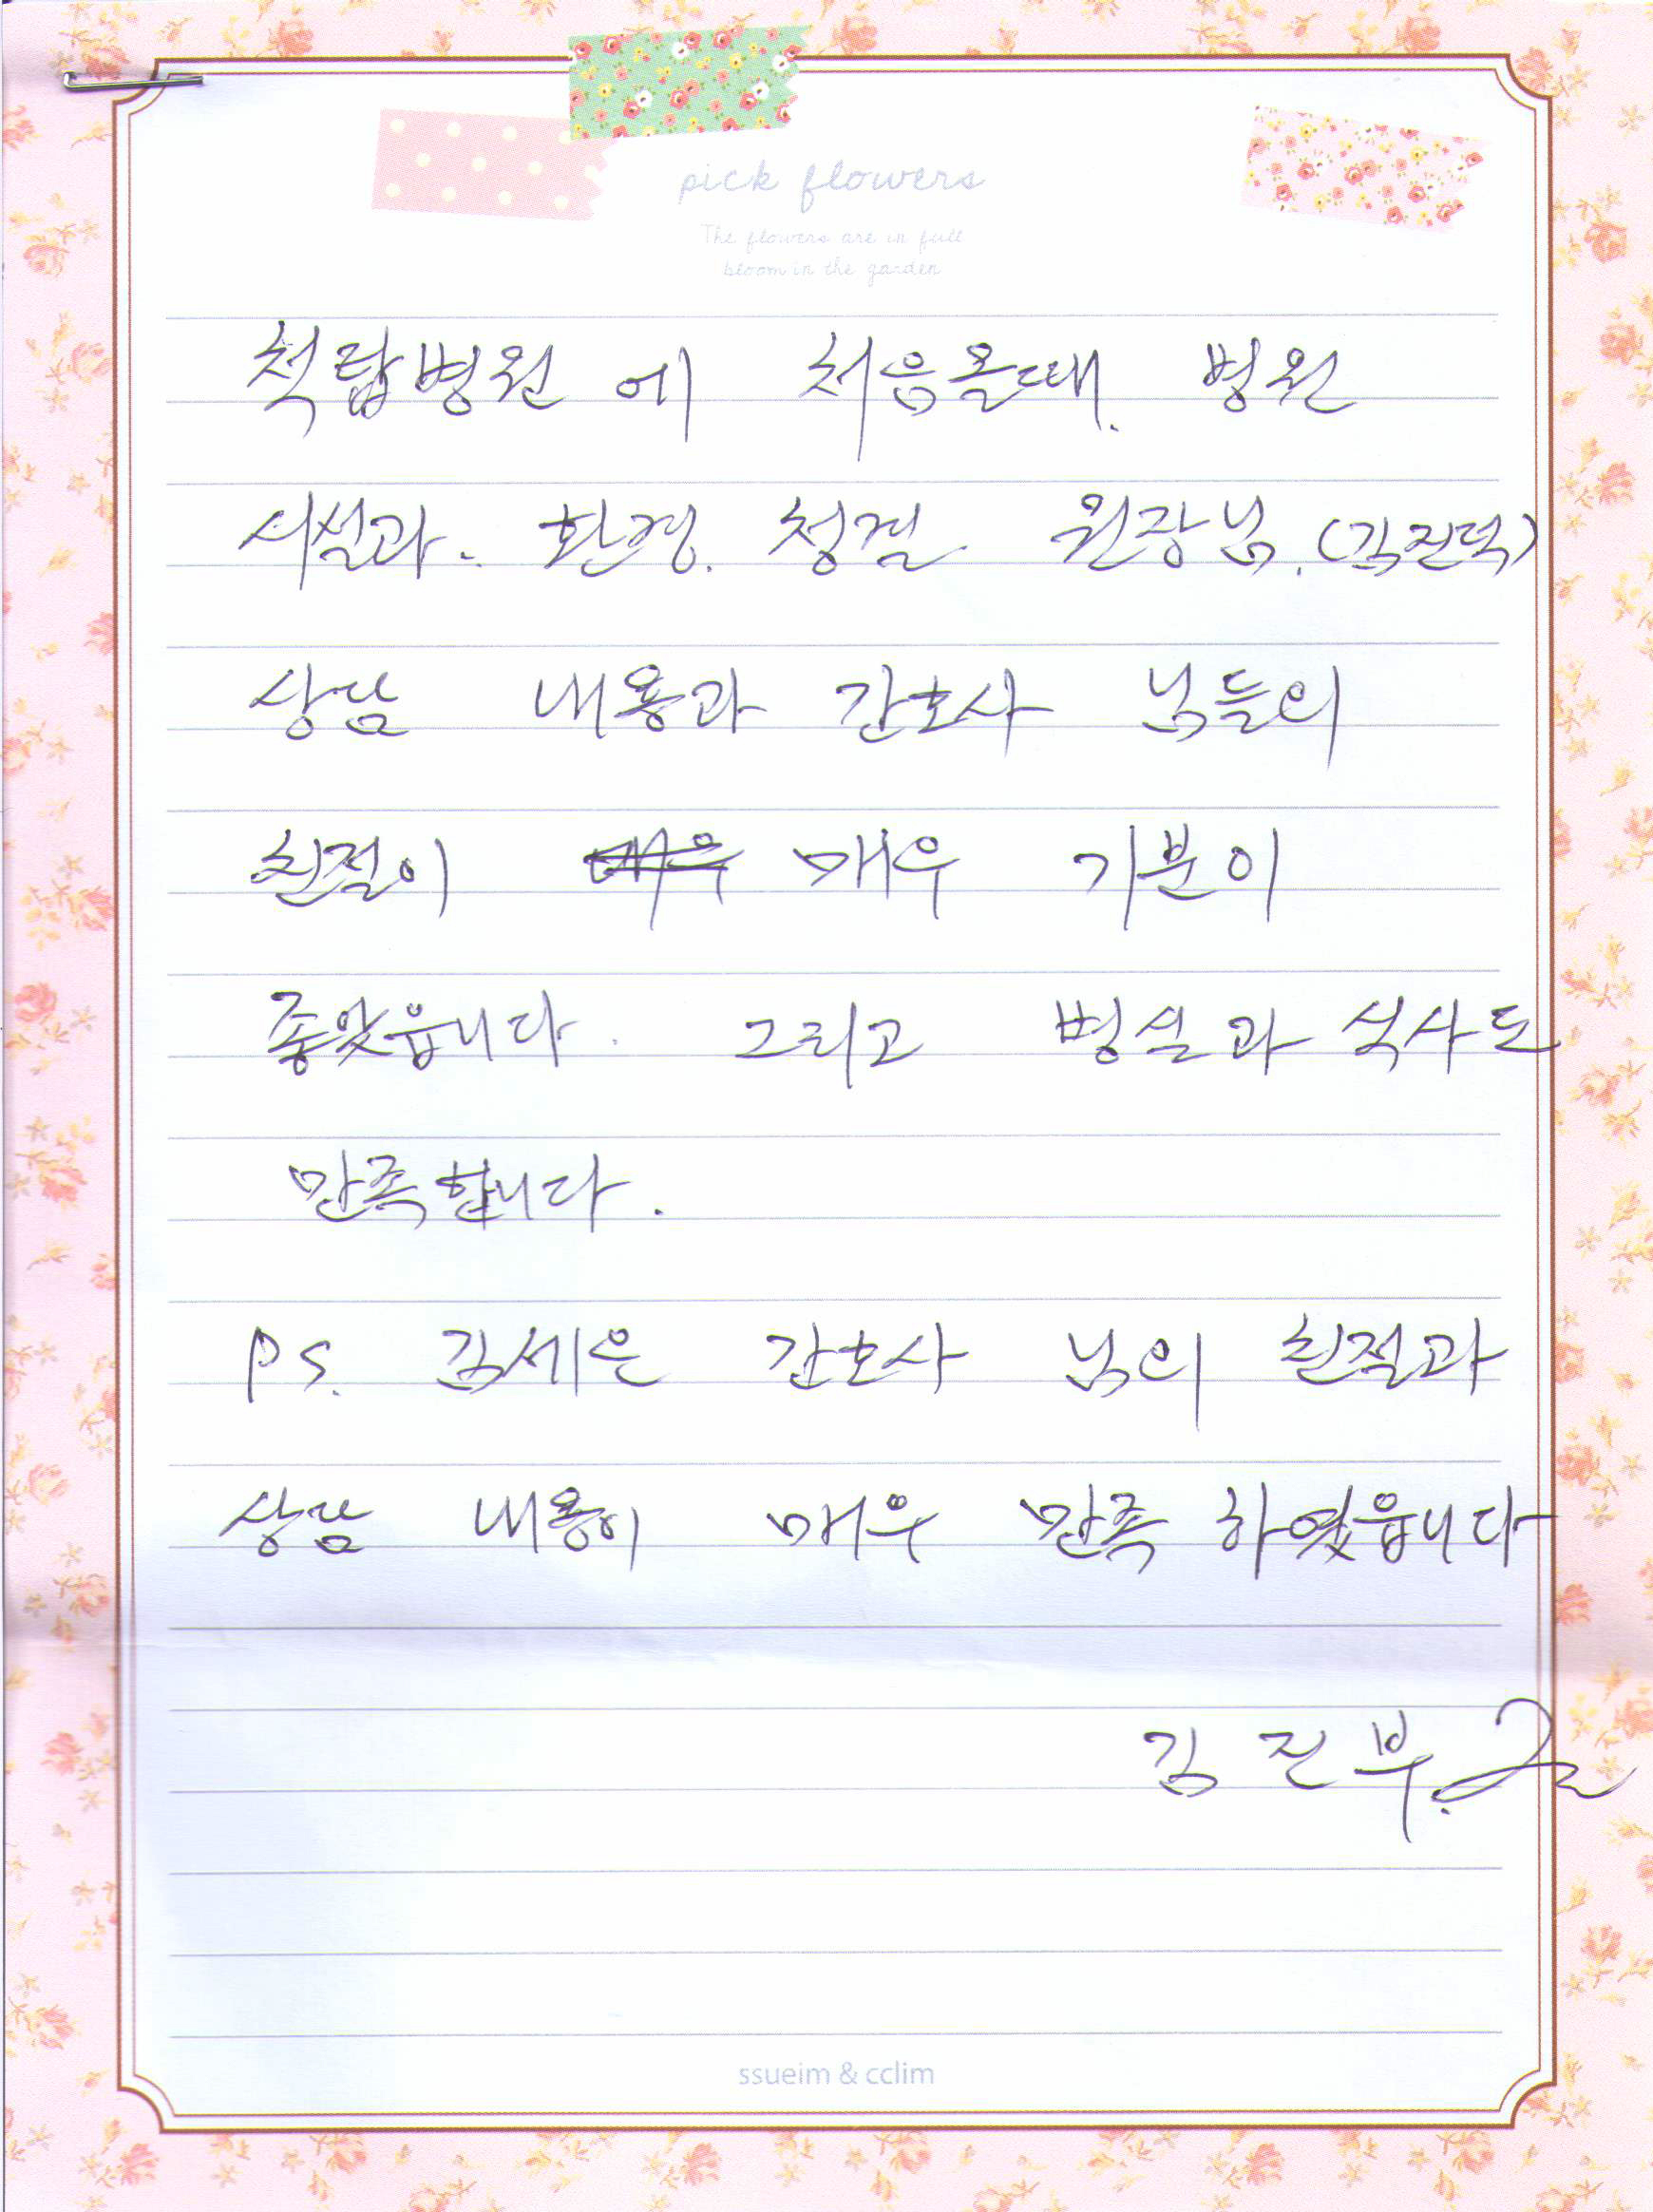 pick flowers
The flowers are in full
bloom in the garden
척탑병원 에 처음올때. 병원
시설과. 환경. 청결 원장님.(김진덕)
상담 내용과 간호사 님들의
친절이 매우 매우 기분이
좋았읍니다. 그리고 병실과 식사도
만족합니다.
PS. 김세은 간호사 님의 친절과
상담 내용이 매우 만족 하였읍니다
김진부.
ssueim & cclim